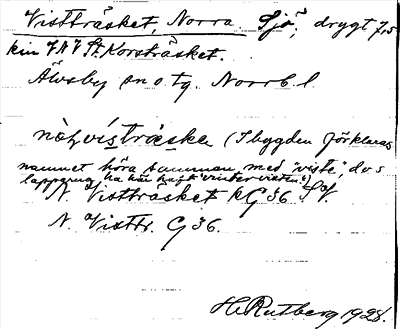 Vistträsket, Norra. Sjö, drygt 7,5
km VNV St. Korsträsket.
Älvsby sn o tg. Norrb. l.
nòḷvístrǻske (I bygden förklaras
namnet höra samman med "viste", dvs
lapparna ha här haft "vinterviste".)
N. Vistträsket kG36 SV.
N. Visttr. G36.
H. Rutberg 1928.